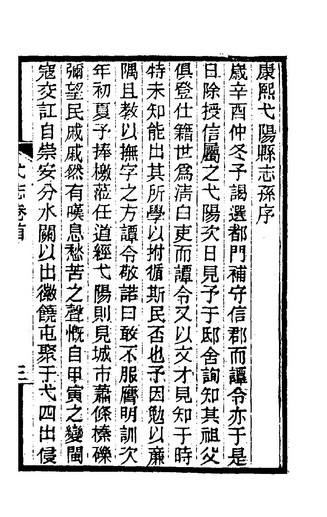 康熙弋陽縣志孫序
歲辛酉仲冬予謁選都門補守信郡而譚令亦于是
日除授信屬之弋陽次日見予于邸舍詢知其祖父
俱登仕籍世爲淸白吏而譚令又以文才見知于時
特未知能出其所學以拊循斯民否也予因勉以廉
隅且教以撫字之方譚令敬諾曰敢不服膺明訓次
年初夏予捧檄蒞任道經弋陽則見城市蕭條榛礫
彌望民戚戚然有嘆息愁苦之聲慨自甲寅之變閩
寇交訌自崇安分水關以出徽饒屯聚于弋四出侵
弋志卷首
三